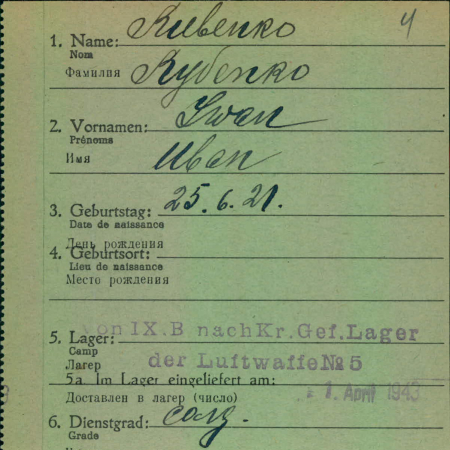 4
1. Name: Kubenko
Nom
Фамилия Кубенко
2. Vornamen: Iwan
Prénoms
Имя Иван
3. Geburtstag: 25. 6. 21.
Date de naissance
День рождения
4. Geburtsort:
Lieu de naissance
Место рождения
von IX.B nach Kr. Gef. Lager
5. Lager:
Camp
der Luftwaffe № 5
Лагер
5a. Im Lager eingeliefert am:
Доставлен в лагер (число)
1. April 1943
6. Dienstgrad: солд.
Grade